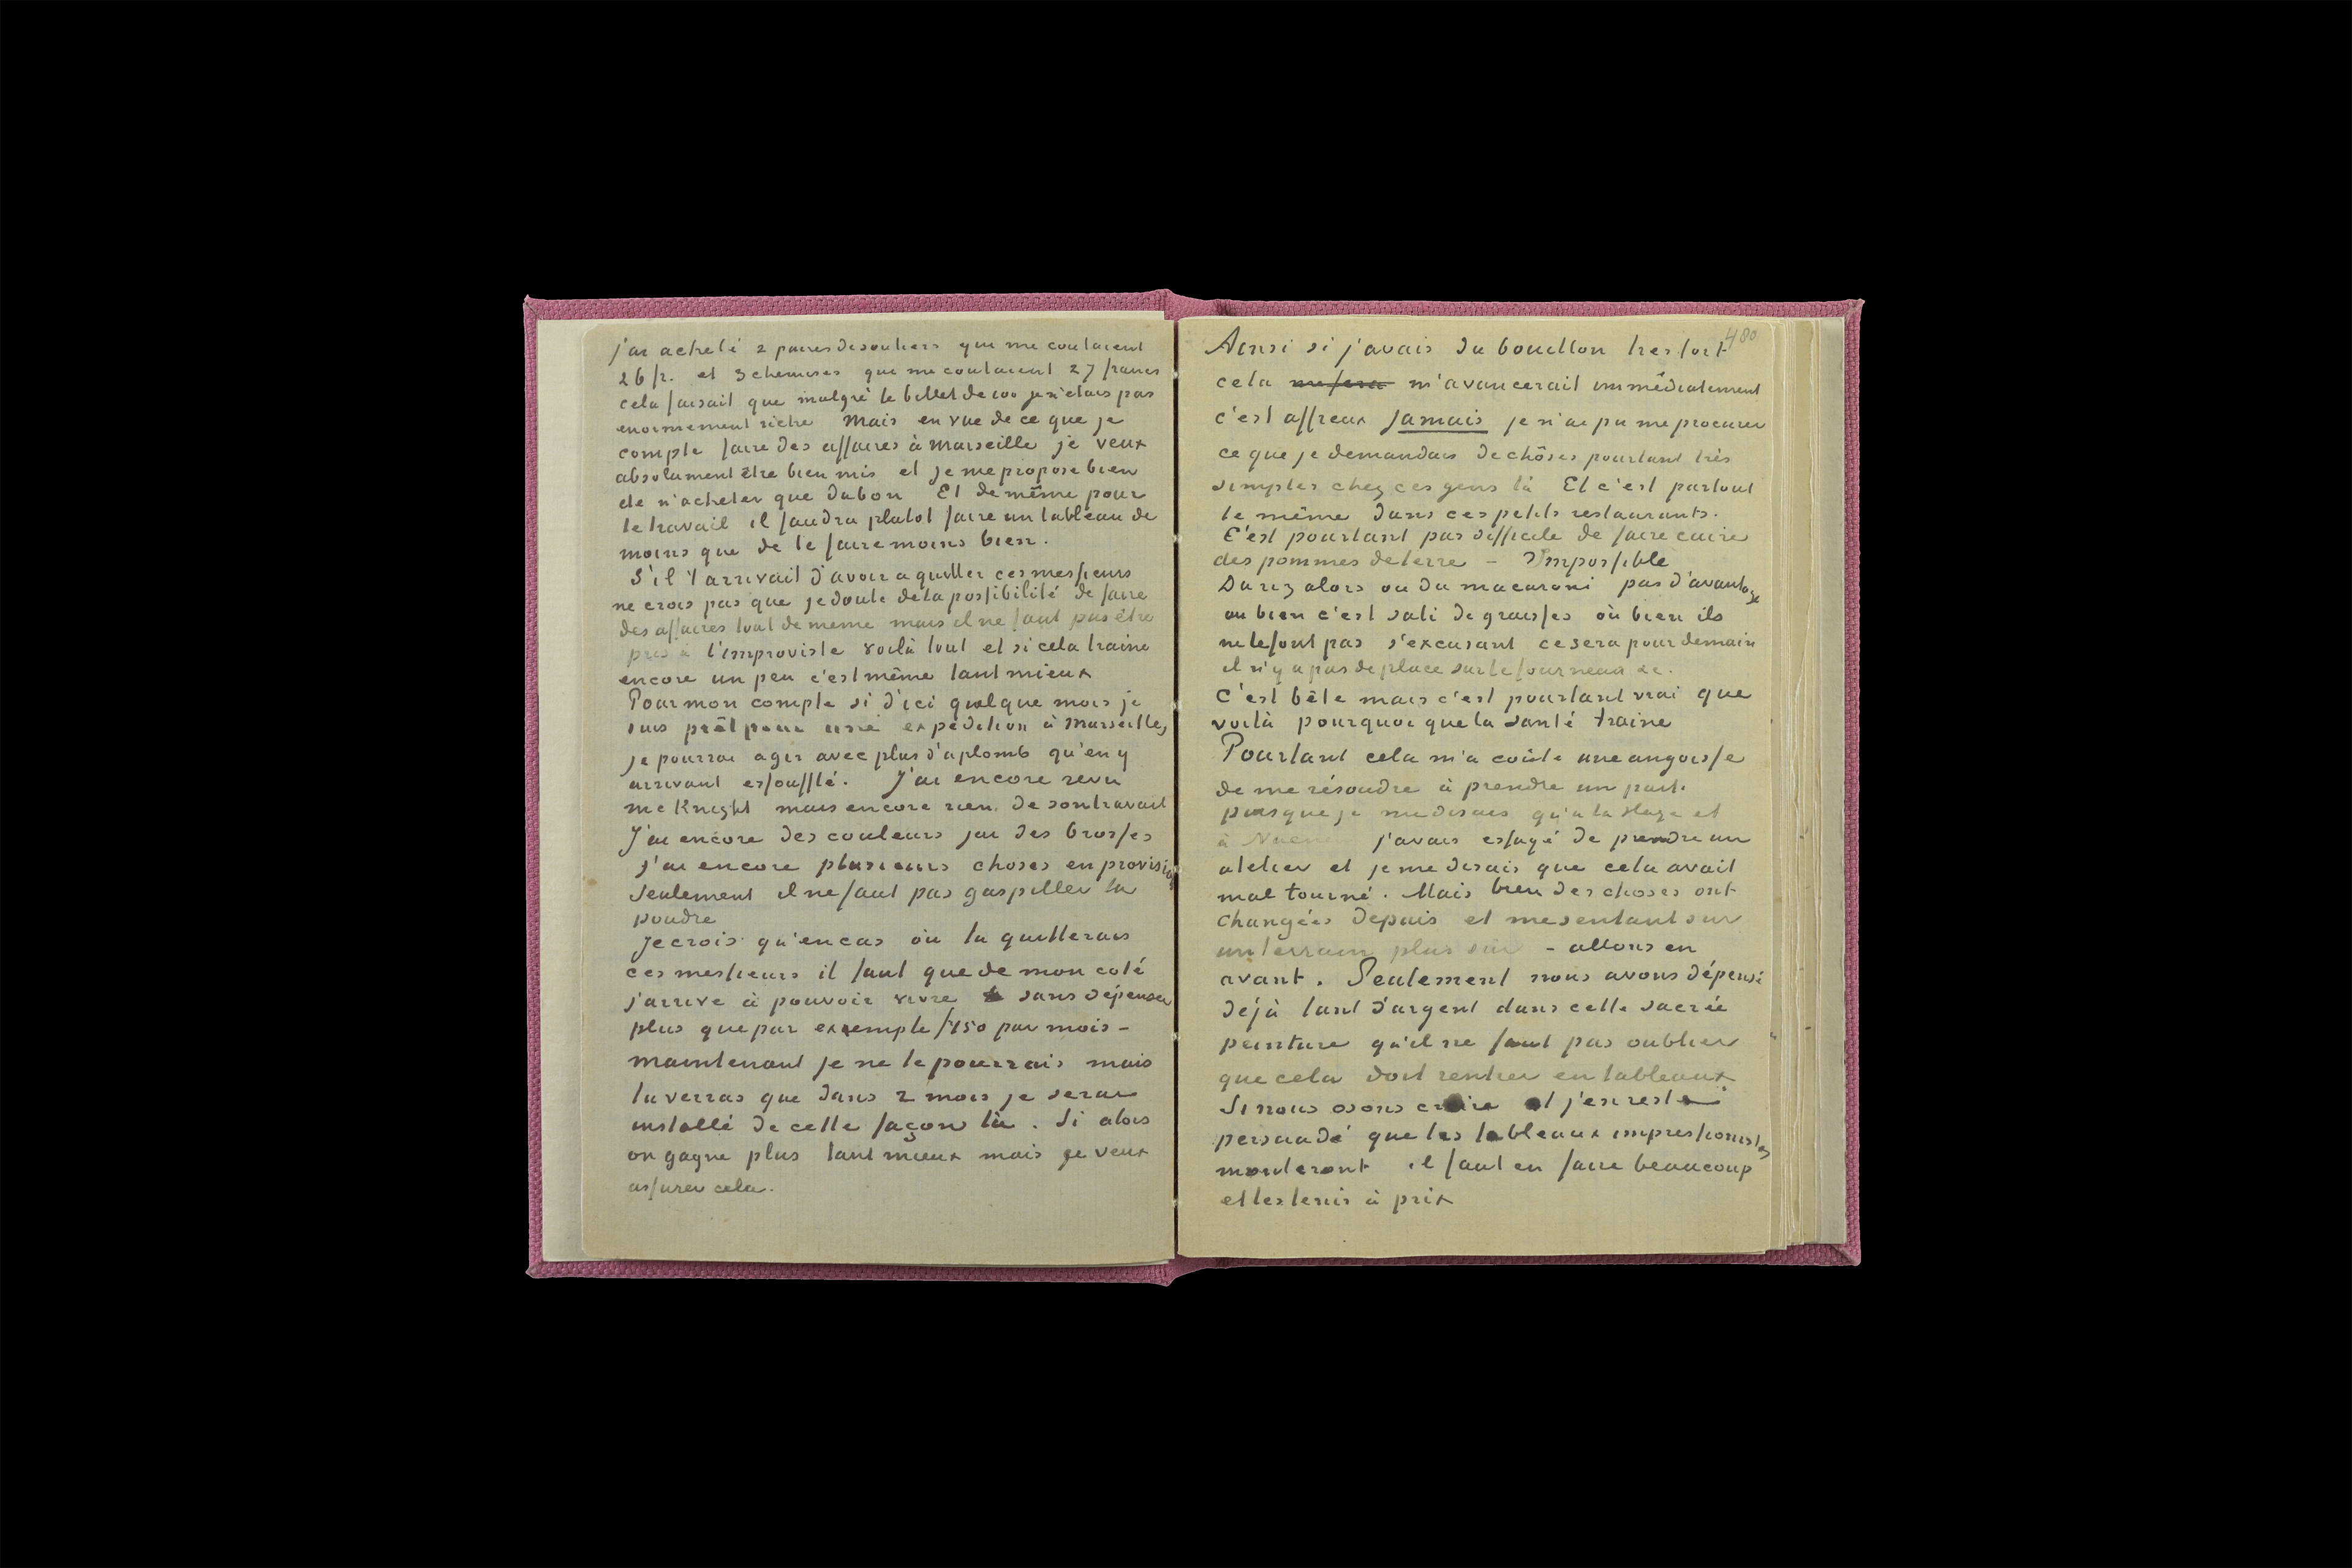 j'ai acheté 2 paires de souliers qui me coutaient
26 fr. et 3 chemises qui me coutaient 27 francs
cela faisait que malgré le billet de 100 je n'étais pas
enormement riche Mais en vue de ce que je
compte faire des affaires à Marseille je veux
absolument être bien mis et je me propose bien
de n'acheter que du bon Et de même pour
le travail il faudra plutot faire un tableau de
moins que de le faire moins bien.
S'il t'arrivait d'avoir a quitter ces messieurs
ne crois pas que je doute de la possibilité de faire
des affaires tout de meme mais il ne faut pas être
pris à l'improviste voilà tout et si cela traine
encore un peu c'est même tant mieux
Pour mon compte si d'ici quelque mois je
suis prêt pour une expédition à Marseille,
je pourrai agir avec plus d'aplomb qu'en y
arrivant essoufflé. J'ai encore revu
mc Knight mais encore rien de son travail
J'ai encore des couleurs j'ai des brosses
j'ai encore plusieurs choses en provision
Seulement il ne faut pas gaspiller la
poudre
Je crois qu'en cas où tu quitterais
ces messieurs il faut que de mon coté
j'arrive à pouvoir vivre sans dépenser
plus que par exemple f 150 par mois –
maintenant je ne le pourrais mais
tu verras que dans 2 mois je serai
installé de cette façon là. Si alors
on gagne plus tant mieux mais je veux
assurer cela.
480
Ainsi si j'avais du bouillon tres fort
cela me fera m'avancerait immédiatement
c'est affreux Jamais je n'ai pu me procurer
ce que je demandais de chôses pourtant très
simples chez ces gens là Et c'est partout
le même dans ces petits restaurants.
C'est pourtant pas difficile de faire cuire
des pommes de terre – Impossible
Du riz alors ou du macaroni pas d'avantage
ou bien c'est sali de graisses où bien ils
ne le font pas s'excusant ce sera pour demain
il n'y a pas de place sur le fourneau &c.
C'est bête mais c'est pourtant vrai que
voilà pourquoi que la santé traine
Pourtant cela m'a couté une angoisse
de me résoudre à prendre un parti
puisque je me disais qu'a la Haye et
à Nuenen j'avais essayé de prendre un
atelier et je me disais que cela avait
mal tourné. Mais bien des choses ont
changées depuis et me sentant sur
un terrain plus sûr – allons en
avant. Seulement nous avons dépensé
déjà tant d'argent dans cette sacrée
peinture qu'il ne faut pas oublier
que cela doit rentrer en tableaux.
Si nous osons croire et j'en reste
persuadé que les tableaux impressionistes
monteront il faut en faire beaucoup
et les tenir à prix